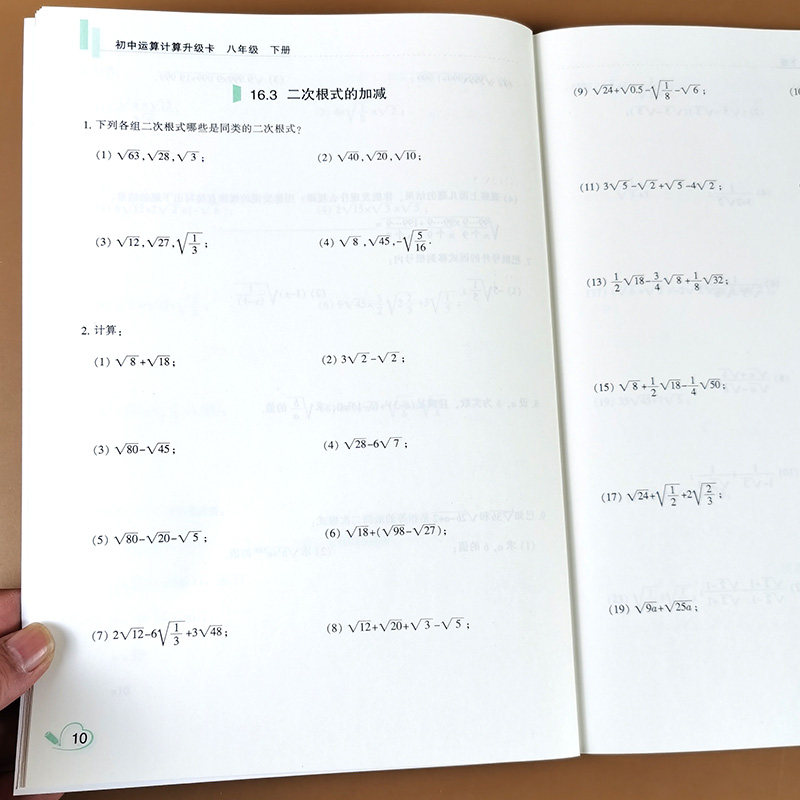 初中运算计算升级卡 八年级 下册
16.3 二次根式的加减
1. 下列各组二次根式哪些是同类的二次根式?
(1) √63,√28,√3; (2) √40,√20,√10;
(3) √12,√27,√(1/3); (4) √8,√45,-√(5/16).
2. 计算:
(1) √8+√18; (2) 3√2-√2;
(3) √80-√45; (4) √28-6√7;
(5) √80-√20-√5; (6) √18+(√98-√27);
(7) 2√12-6√(1/3)+3√48; (8) √12+√20+√3-√5;
10
(9) √24+√0.5-√(1/8)-√6;
(11) 3√5-√2+√5-4√2;
(13) 1/2√18-3/4√8+1/8√32;
(15) √8+1/2√18-1/4√50;
(17) √24+√(1/2)+2√(2/3);
(19) √9a+√25a;